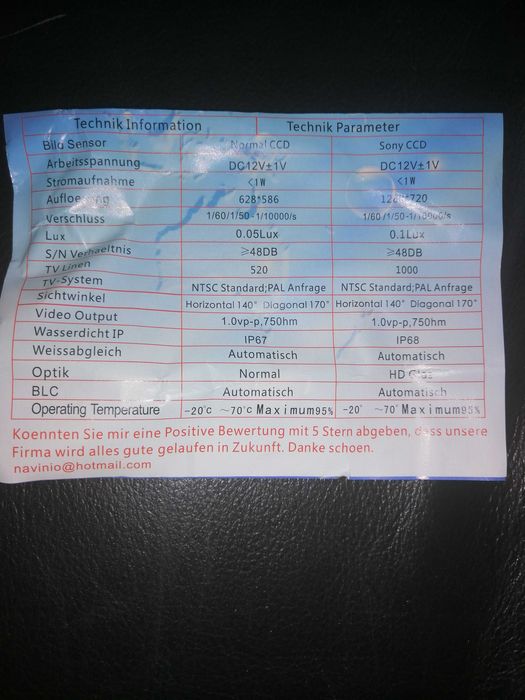 Technik Information Technik Parameter
Bild Sensor Normal CCD Sony CCD
Arbeitsspannung DC12V±1V DC12V±1V
Stromaufnahme <1W <1W
Aufloesung 628*586 720
Verschluss 1/60/1/50-1/10000/s 1/60/1/50-1/10000/s
Lux 0.05Lux 0.1Lux
S/N Verhaeltnis ≥48DB ≥48DB
TV Linen 520 1000
TV-System NTSC Standard;PAL Anfrage NTSC Standard;PAL Anfrage
Sichtwinkel Horizontal 140° Diagonal 170° Horizontal 140° Diagonal 170°
Video Output 1.0vp-p,750hm 1.0vp-p,750hm
Wasserdicht IP IP67 IP68
Weissabgleich Automatisch Automatisch
Optik Normal HD
BLC Automatisch Automatisch
Operating Temperature -20℃ ~70℃ Maximum95% -20° ~70° Maximum95%
Koennten Sie mir eine Positive Bewertung mit 5 Stern abgeben, dass unsere
Firma wird alles gute gelaufen in Zukunft. Danke schoen.
navinio@hotmail.com